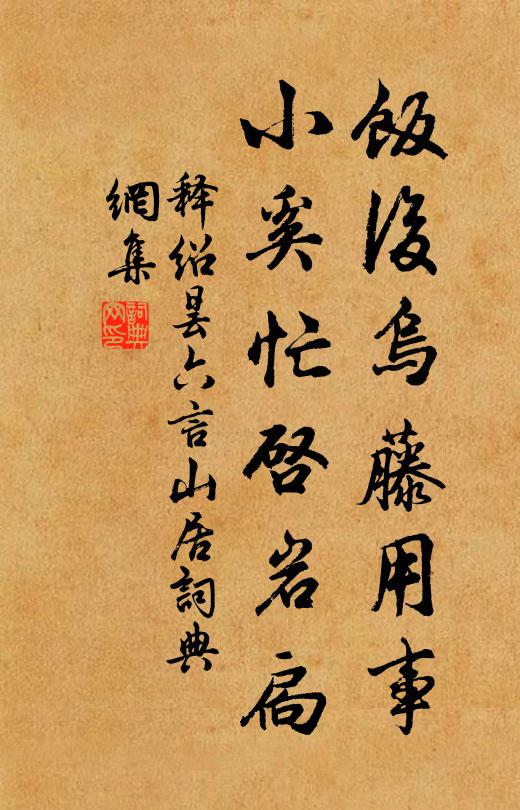 飯後烏藤用事
小奚忙啓岩扃
释紹曇六言山居詞典
網集
詞典